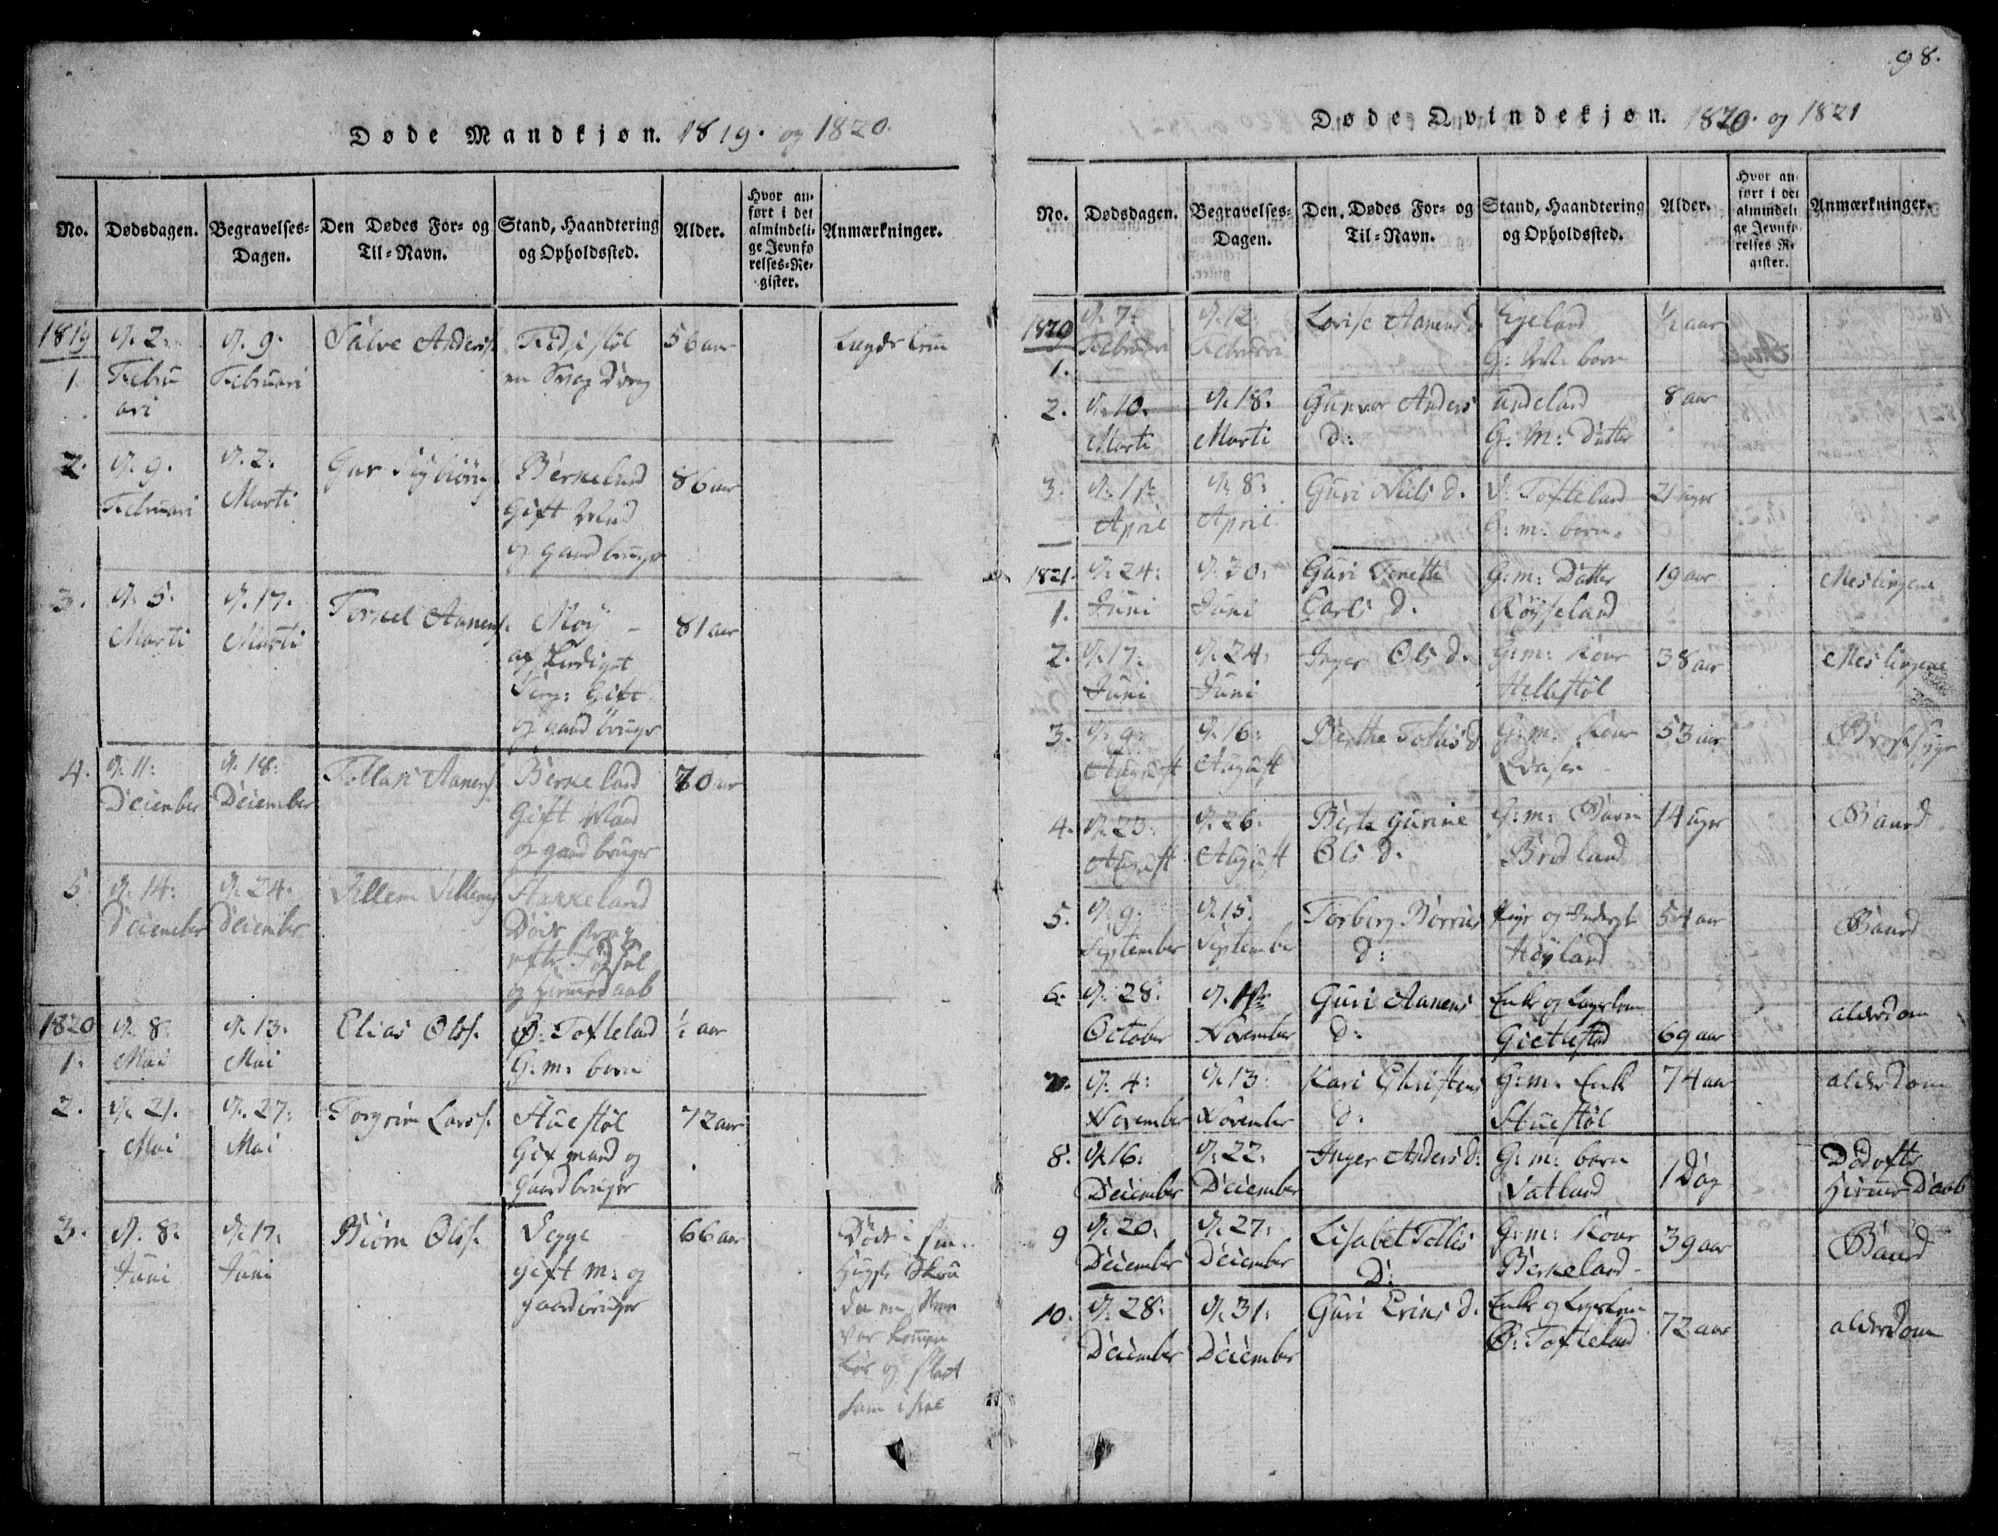 98.
Døde Mandkjøn. 1819. og 1820.
No.
Dødsdagen.
Begravelses-
Dagen.
Den Dødes For- og
Til-Navn.
Stand, Haandtering
og Opholdssted.
Alder.
Hvor an-
ført i det
almindeli-
ge Jevnfø
relses-Re-
gister.
Anmærkninger.
1819
1.
d. 2.
Febru
ari
d. 9.
Februari
Salve Anders.
56 aar
2.
d. 9.
Februari
d. 2.
Marti
Berkeland
Gift Mand
og gaardbruger
86 aar
3.
d. 5.
Marti
d. 17.
Marti
Aanens.
Møÿ
Gift
og gaardbruger
81 aar
4.
d. 11:
December
d. 18:
December
Tellass Aanens.
Berkeland
Gift Mand
og gaardbruger
70 aar
5.
d. 14:
December
d. 24:
December
Stakkeland
efter Fødsel
og Hiemedaab
1820
1.
d. 8.
Mai
d. 13.
Mai
Elias Olss.
Ø: Tofteland
G: m: barn
½ aar
2.
d. 21.
Mai
d. 27:
Mai
Torgrim Larss.
Stuestøl
Gift mand og
Gaardbruger
72 aar
3.
d. 8:
Juni
d. 17:
Juni
Biørn Olss.
Vegge
gift m: og
gaardbruger
66 aar
Døde i
og
Døde Qvindekjøn. 1820. og 1821
No.
Dødsdagen.
Begravelses-
Dagen.
Den Dødes For- og
Til-Navn.
Stand, Haandtering
og Opholdssted.
Alder.
Hvor an-
ført i det
almindeli
ge Jevnfø-
relses-Re-
gister.
Anmærkninger.
1820
1.
d. 7.
Februari
d. 12.
Februari
Lovise Aanens d.
Egeland
G: M: barn
½ aar
2.
d. 10.
Marti
d. 18.
Marti
Gunvor Anders
d:
Undeland
G: M: Datter
8 aar
3.
April
d. 8:
April
Guri Niels d.
V: Tofteland
G: m: barn.
1821.
1.
d. 24:
Juni
d. 30:
Juni
Guri
Carls d.
G: m: Datter
Røÿseland
19 aar
Meslingene
2.
d. 17:
Juni
d. 24:
Juni
Inger Ols d.
G: m: Kone
Hellestøl
38 aar
Meslingene
3.
d. 9.
August
d. 16:
August
Berthe Tollis d
G: m: Kone
53 aar
4.
d. 23:
August
d. 26:
August
Berte Gurine
Ols d:
G: m:
Bredland
14 uger
5.
d. 9.
September
d. 15:
September
Torborg Børrils
d:
Pige og
Høÿland
54 aar
6.
d. 28.
October
November
Guri Aanens
d:
Enke og
69 aar
alderdom
7.
d. 4:
November
d. 13:
November
Kari Christens
d:
G: m: Enke
Stuestøl
74 aar
alderdom
8.
d. 16:
December
d. 22:
December
Inger Anders d:
G: m: barn
Vatland
1 Dag
Død efter
Hieme Daab
9
d. 20:
December
d. 27:
December
Lisabet Tollis
D:
G: m: Kone
Berkeland
39 aar
10.
d. 28:
December
d. 31:
December
Guri d.
Enke og
Ø: Tofteland
72 aar
alderdom